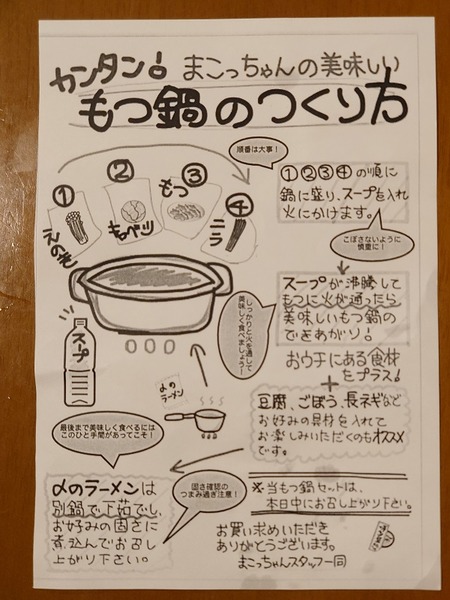 カンタン! まこっちゃんの美味しい
もつ鍋のつくり方
順番は大事!
①②③④の順に
鍋に盛り、スープを入れ
火にかけます。
こぼさないように
慎重に!
①
えのき
②
キャベツ
もつ③
④
ニラ
スープ
スープが沸騰して
もつに火が通ったら
美味しいもつ鍋の
できあがり!
しっかりと火を通して
美味しく食べましょう!
おウチにある食材
をプラス!
+
豆腐、ごぼう、長ネギなど
お好みの具材を入れて
お楽しみいただくのもオススメ
です。
〆の
ラーメン
最後まで美味しく食べるには
このひと手間があってこそ!
〆のラーメンは
別鍋で下茹でし、
お好みの固さに
煮込んでお召し
上がり下さい。
固さ確認の
つまみ過ぎ注意!
※当もつ鍋セットは、
本日中にお召し上がり下さい。
お買い求めいただき
ありがとうございます。
まこっちゃんスタッフ一同